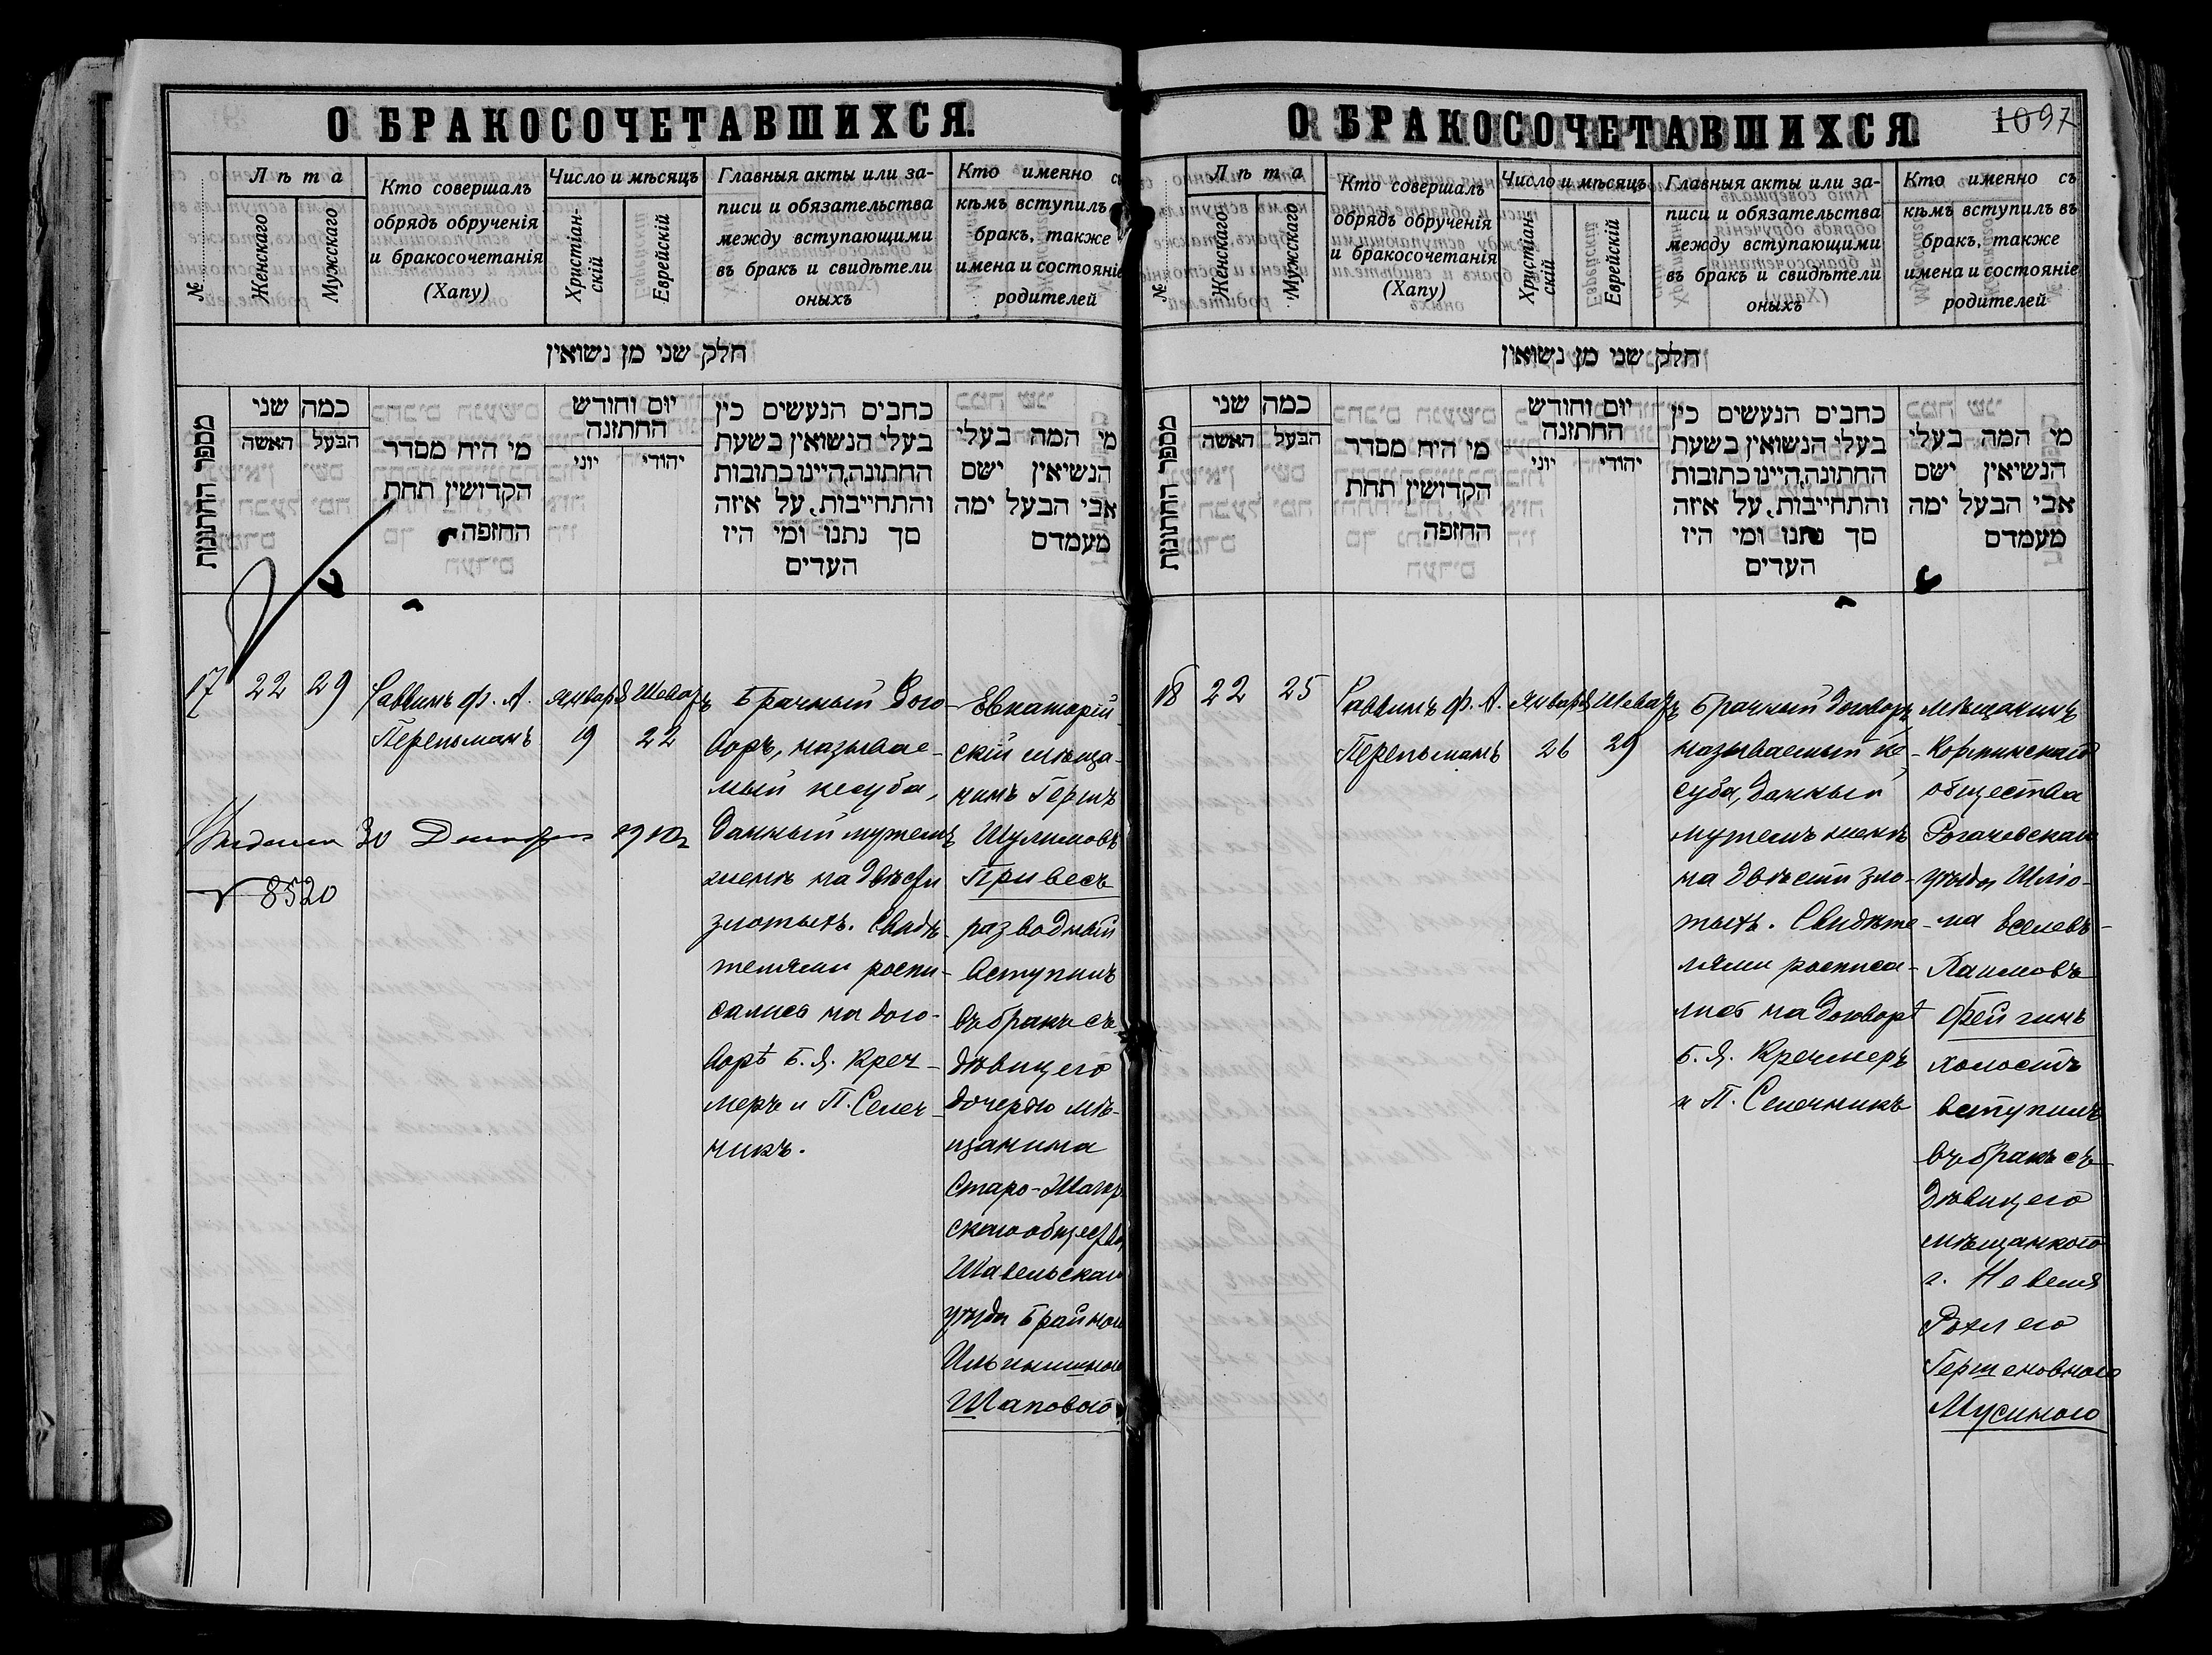 О БРАКОСОЧЕТАВШИХСЯ.
№
Лѣта
Женскаго
Мужскаго
Кто совершалъ
обрядъ обрученія
и бракосочетанія
(Хапу)
Число и мѣсяцъ
Христіан-
скій
Еврейскій
Главныя акты или за-
писи и обязательства
между вступающими
въ бракъ и свидѣтели
оныхъ
Кто именно съ
кѣмъ вступилъ
бракъ, также
имена и состояніе
родителей
חלק שני מן נשואין
מספר החתונות
כמה שני
האשה
הבעל
מי היח מסדר
הקדושין תחת
החופה
יום וחודש
החתונה
יוני
יהודי
כתבים הנעשים כין
בעלי הנשואין בשעת
החתונה,היינו כתובות
והתחייבות, על איזה
סך נתנו ומי היו
העדים
מי המה בעלי
הנשיאין ישם
אבי הבעל ימה
מעמדם
17
22
29
Раввинъ Ф. А.
Перельманъ
Январь
19
Шеватъ
22
Брачный дого-
воръ, называе-
мый кесуба,
данный мужемъ
женѣ на двѣсти
злотыхъ. Свидѣ-
телями роспи-
сались на дого-
ворѣ Б. Я. Креч-
меръ и П. Селеч-
никъ.
Евпаторій-
скій мѣща-
нинъ Гершъ
Шулимовъ
Привесъ
разводный
вступилъ
въ бракъ съ
дѣвицею
дочерью мѣ-
щанина
Старо-Шагор
скаго общества
Шавельскаго
уѣзда Брайною
Ильинишною
Шаповой
30
8520
О БРАКОСОЧЕТАВШИХСЯ.
10 97
№
Лѣта
Женскаго
Мужскаго
Кто совершалъ
обрядъ обрученія
и бракосочетанія
(Хапу)
Число и мѣсяцъ
Христіан-
скій
Еврейскій
Главныя акты или за-
писи и обязательства
между вступающими
въ бракъ и свидѣтели
оныхъ
Кто именно съ
кѣмъ вступилъ въ
бракъ, также
имена и состояніе
родителей
חלק שני מן נשואין
מספר החתונות
כמה שני
האשה
הבעל
מי היח מסדר
הקדושין תחת
החופה
יום וחודש
החתונה
יוני
יהודי
כתבים הנעשים כין
בעלי הנשואין בשעת
החתונה,היינו כתובות
והתחייבות, על איזה
סך נתנו ומי היו
העדים
מי המה בעלי
הנשיאין ישם
אבי הבעל ימה
מעמדם
18
22
25
Раввинъ Ф. А.
Перельманъ
Январь
26
Шеватъ
29
Брачный договоръ
называемый ке-
суба, данный
мужемъ женѣ
на двѣсти зло-
тыхъ. Свидѣте-
лями росписа-
лись на договорѣ
Б. Я. Кречмеръ
и П. Селечникъ
мѣщанинъ
Кормянскаго
общества
Рогачевскаго
уѣзда Шлiо-
ма
Фейгинъ
холостъ
вступилъ
въ бракъ съ
дѣвицею
мѣщанкою
г. Невеля
Рохлею
Гершеновною
Мусиною